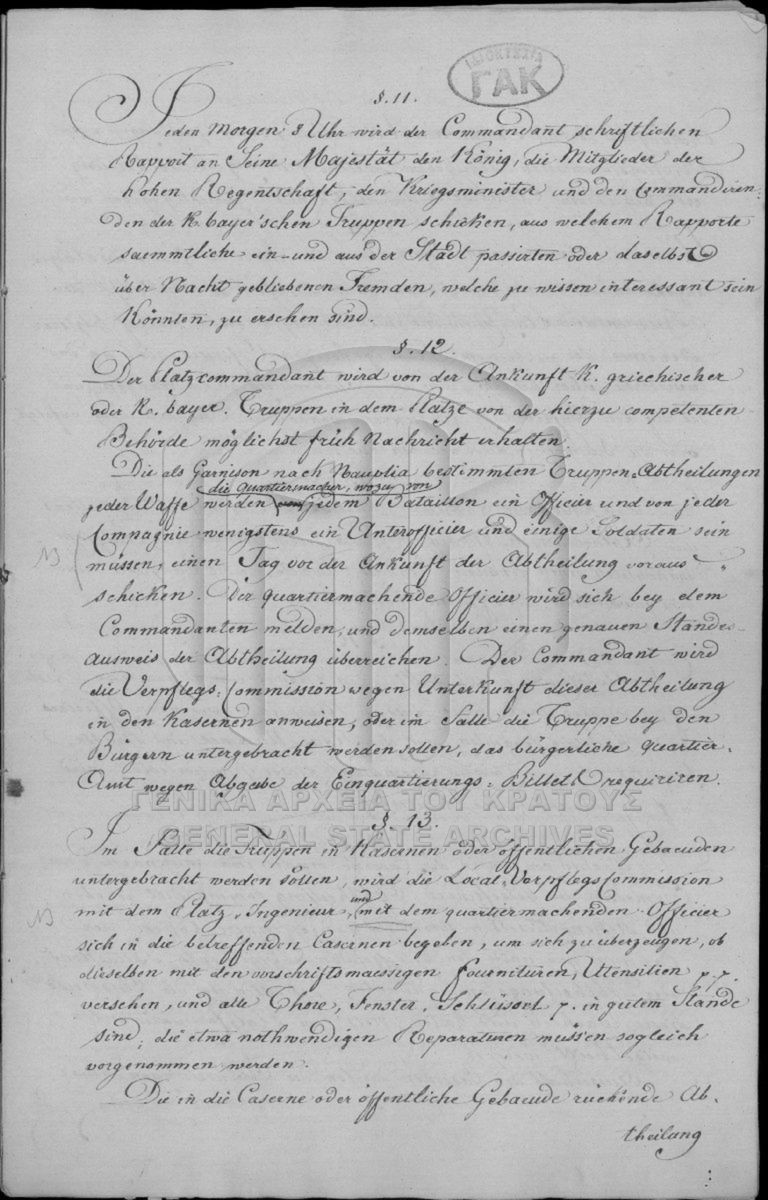 ΙΔΙΟΚΤΗΣΙΑ
ΓΑΚ
§. 11.
Jeden Morgen 8 Uhr wird der Commandant schriftlichen
Rapport an Seine Majestät den König, die Mitglieder der
hohen Regentschaft, den Kriegsminister und den Commandiren-
den der K. bayer'schen Truppen schicken, aus welchem Rapporte
saemmtliche ein- und aus der Stadt passirten oder daselbst
über Nacht gebliebenen Fremden, welche zu wissen interessant sein
könnten, zu ersehen sind.
§. 12.
Der Platzcommandant wird von der Ankunft K. griechischer
oder K. bayer. Truppen in dem Platze von der hierzu competenten
Behörde möglichst früh Nachricht erhalten.
Die als Garnison nach Nauplia bestimmten Truppen-Abtheilungen
die Quartiermacher, wozu von
jeder Waffe werden jedem Bataillon ein Officier und von jeder
Compagnie wenigstens ein Unterofficier und einige Soldaten sein
müssen, einen Tag vor der Ankunft der Abtheilung voraus
schicken. Der quartiermachende Officier wird sich bey dem
Commandanten melden, und demselben einen genauen Standes-
ausweis der Abtheilung überreichen. Der Commandant wird
die Verpflegs-Commission wegen Unterkunft dieser Abtheilung
in den Kasernen anweisen, oder im Falle die Truppe bey den
Bürgern untergebracht werden sollen, das bürgerliche Quartier-
Amt wegen Abgabe der Einquartierungs-Billets requiriren.
ΓΕΝΙΚΑ ΑΡΧΕΙΑ ΤΟΥ ΚΡΑΤΟΥΣ
GENERAL STATE ARCHIVES
§. 13.
Im Falle die Truppen in Kasernen oder öffentlichen Gebaeuden
untergebracht werden sollen, wird die Local-Verpflegs Commission
und
mit dem Platz-Ingenieur, mit dem quartiermachenden Officier
sich in die betreffenden Casernen begeben, um sich zu überzeugen, ob
dieselben mit den vorschriftsmaessigen Fournituren, Utensilien p. p.
versehen, und alle Thore, Fenster, Schlüssel p. in gutem Stande
sind; die etwa nothwendigen Reparaturen müssen sogleich
vorgenommen werden.
Die in die Caserne oder öffentliche Gebaeude rückende Ab-
theilung